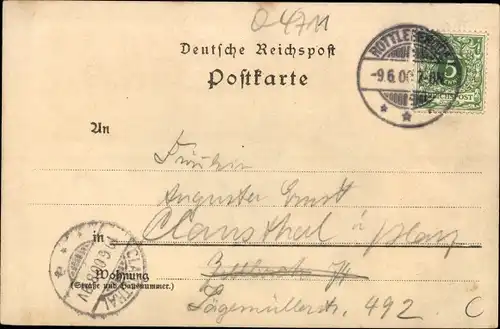 Deutsche Reichspost
Postkarte
ROTTLEBERODE
-9.6.00. 7-8N.
5
REICHSPOST
An
Fräulein
Auguste Ernst
in Clausthal i/Harz
CLAUSTHAL
Wohnung
(Straße und Hausnummer.)
Sägemüllerstr. 492.
C